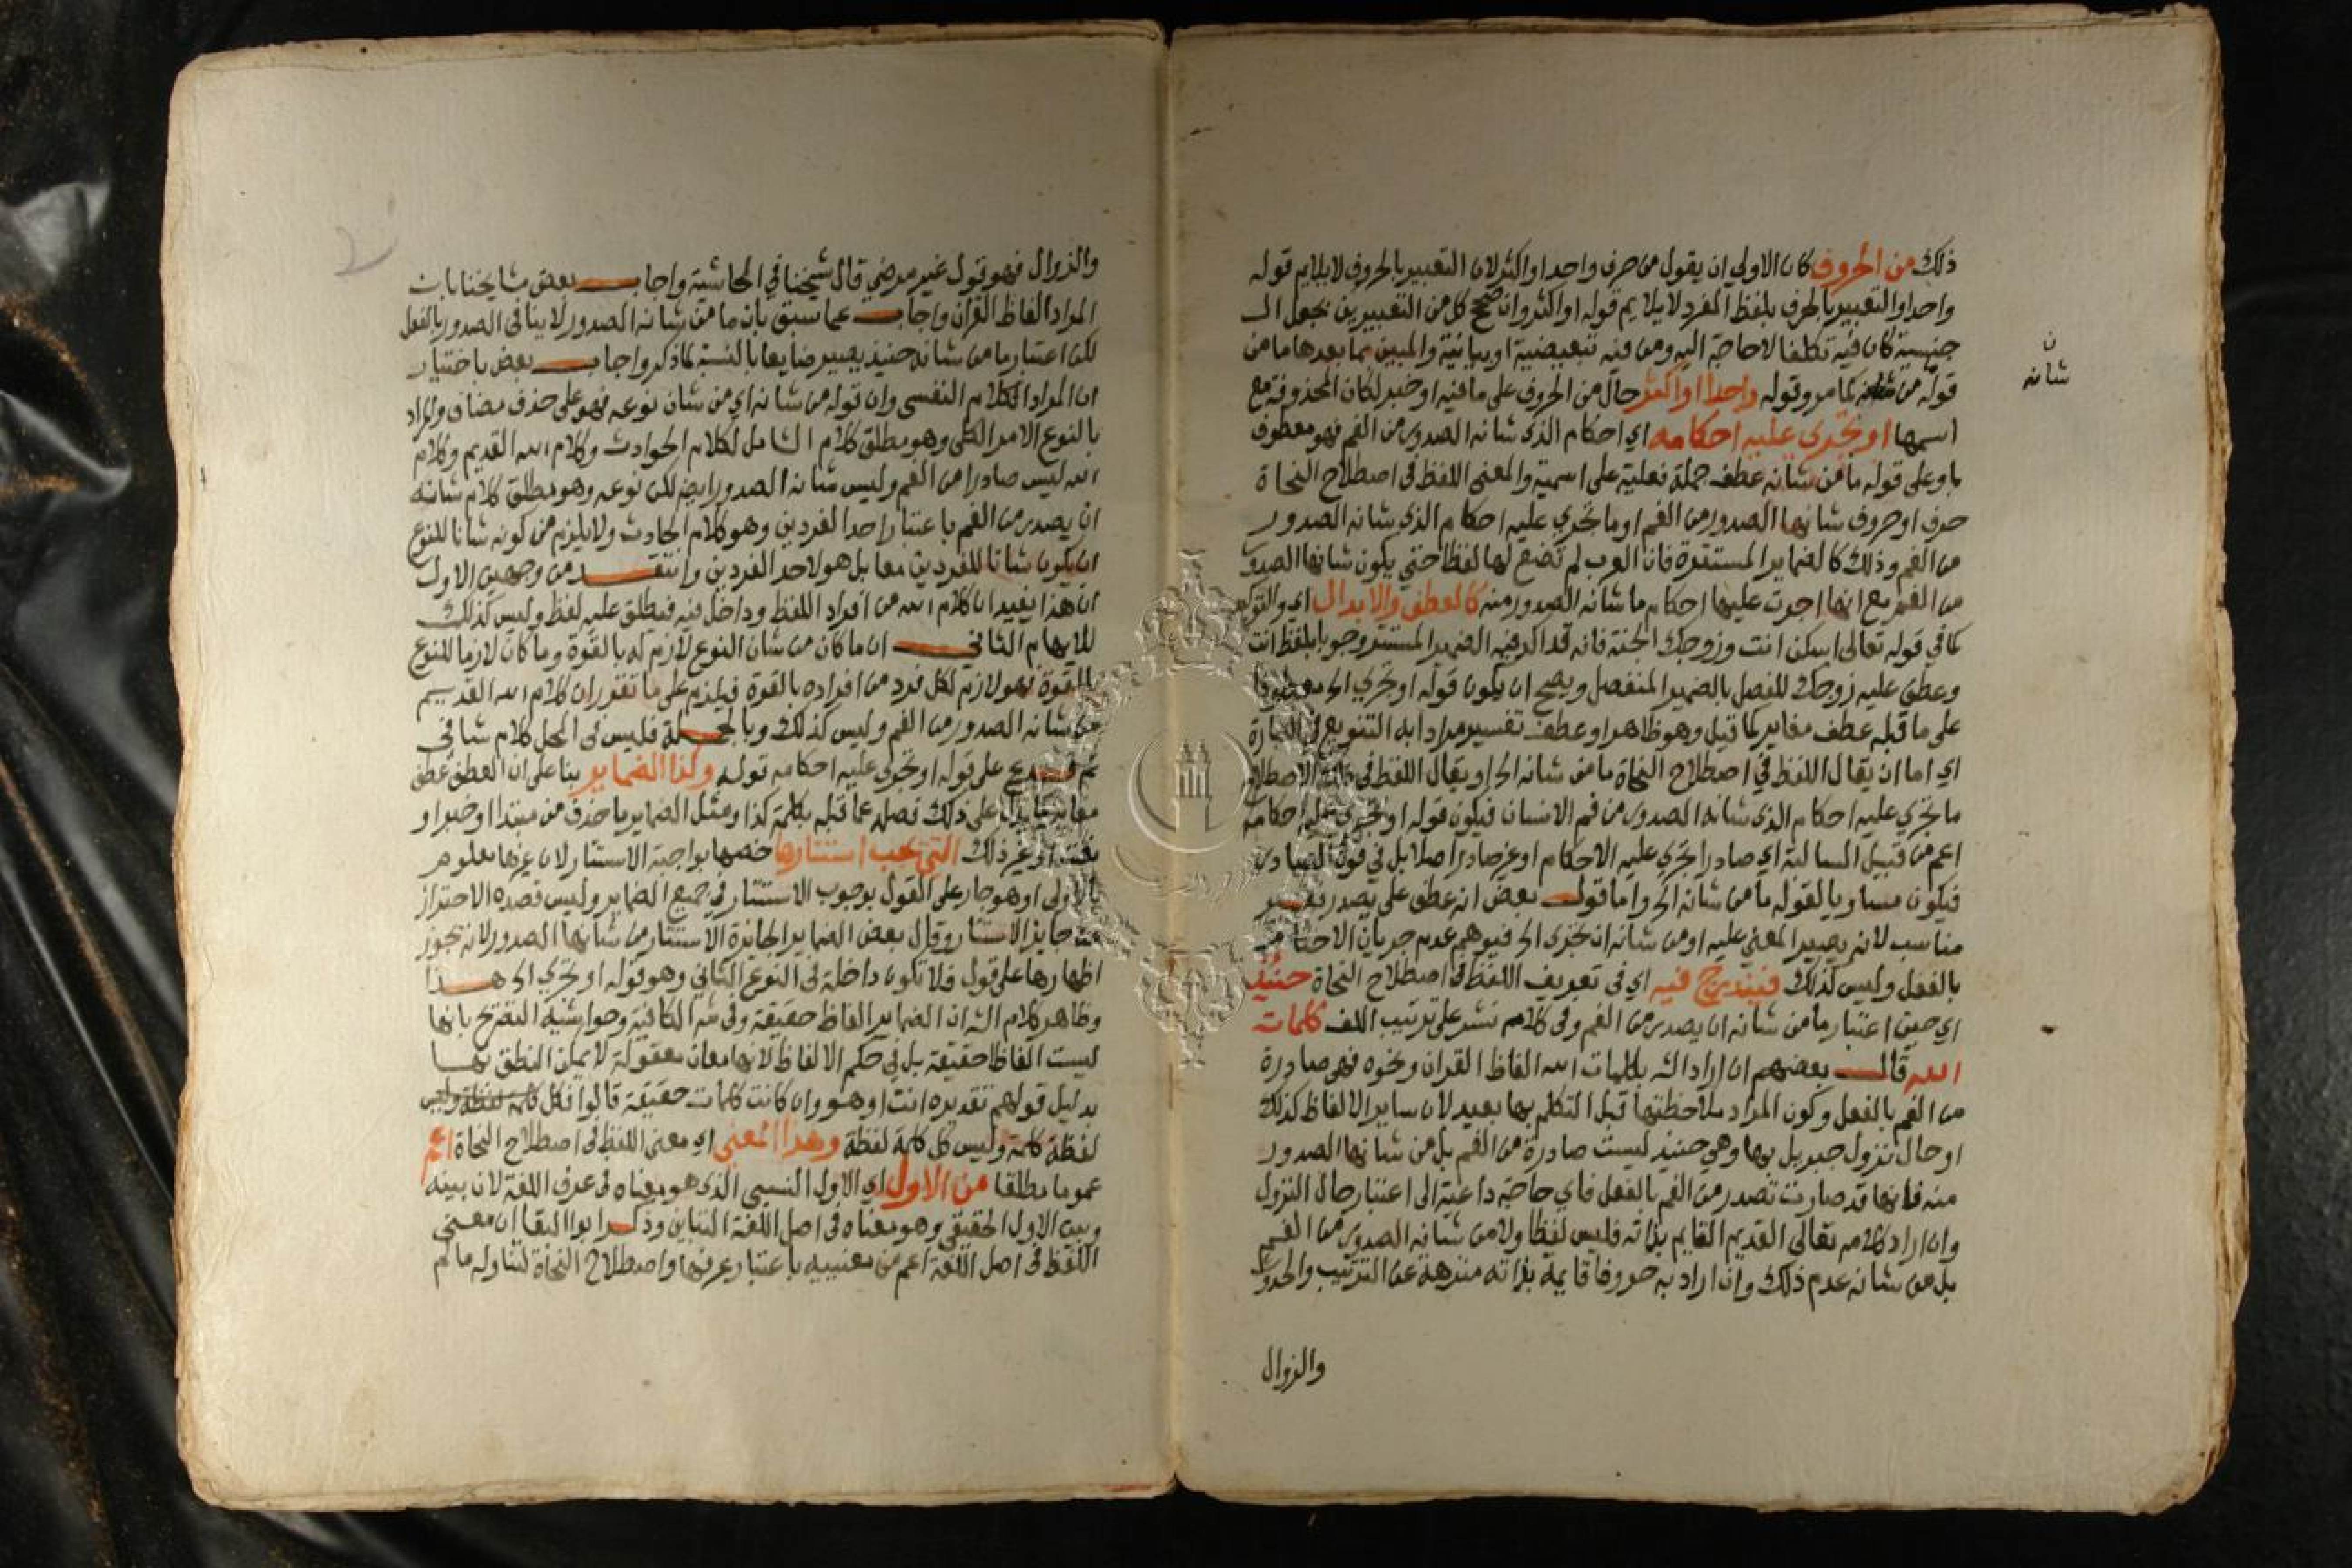 ذلك من الحروف كان الاولي ان يقول من حرف واحد او اكثر لان التعبير بالحروف لا يلايم قوله
واحدا والتعبير بالحرف بلفظ المفرد لا يلايم قوله او اكثر وان صح كل من التعبيرين بجعل ال
جنسية كان فيه تكلفا لا حاجة اليه ومن فيه تبعيضية او بيانية والمبين بما بعدها ما من
قوله من شانه كما مر وقوله واحدا او اكثر حال من الحروف على ما فيه او خبر لكان المحذوفة مع
ن
شانه
اسمها او تجري عليه احكامه اي احكام الذي شانه الصدور من الفم فهو معطوف
باو على قوله ما من شانه عطف جملة فعلية على اسمية والمعنى اللفظ في اصطلاح النحاة
حرف او حروف شانها الصدور من الفم او ما تجري عليه احكام الذي شانه الصدور
من الفم وذلك كالضماير المستترة فان العرب لم تضع لها لفظا حتي يكون شانها الصدور
من الفم مع انها اجرت عليها احكام ما شانه الصدور منه كالعطف والابدال اي والتوكيد
كما في قوله تعالى اسكن انت وزوجك الجنة فانه قد اكد فيه الضمير المستتر وجوبا بلفظ انت
وعطف عليه زوجك للفصل بالضمير المنفصل ويصح ان يكون قوله او تجري الخ معطوفا
على ما قبله عطف مغاير كما قيل وهو ظاهر او عطف تفسير مرادا به التنويع في العبارة
اي اما ان يقال اللفظ في اصطلاح النحاة ما من شانه الخ او يقال اللفظ في ذلك الاصطلاح
ما تجري عليه احكام الذي شانه الصدور من فم الانسان فيكون قوله او تجري عليه احكامه
اعم من قبيل السالبة اي صادرا تجري عليه الاحكام او غير صادر اصلا بل في قوة الصادر
فيكون مساويا لقوله ما من شانه الخ واما قول بعض انه عطف على يصدر فغير
مناسب لانه يصير المعني عليه او من شانه ان تجري الخ فيوهم عدم جريان الاحكام
بالفعل وليس كذلك فيندرج فيه اي في تعريف اللفظ في اصطلاح النحاة حينئذ
اي حين اعتبار ما من شانه ان يصدر من الفم وفي كلامه نشر على ترتيب اللف كلمات
الله قال بعضهم ان اراد الش بكلمات الله الفاظ القران ونحوه فهي صادرة
من الفم بالفعل وكون المراد ملاحظتها قبل التكلم بها بعيد لان ساير الالفاظ كذلك
او حال نزول جبريل بها وهي حينئذ ليست صادرة من الفم بل من شانها الصدور
منه فانها قد صارت تصدر من الفم بالفعل فاي حاجة داعية الى اعتبار حال النزول
وان اراد كلامه تعالى القديم القايم بذاته فليس لفظا ولا من شانه الصدور من الفم
بل من شانه عدم ذلك وان اراد به حروفا قايمة بذاته منزهة عن الترتيب والحدوث
والزوال
والزوال فهو قول غير مرضي قال شيخنا في الحاشية واجاب بعض مشايخنا بان
المراد الفاظ القران واجاب عما سبق بان ما من شانه الصدور لا ينافي الصدور بالفعل
لكن اعتبار ما من شانه حينئذ يصير ضايعا بالنسبة لما ذكر واجاب بعض باختيار
ان المراد الكلام النفسي وان قوله من شانه اي من شان نوعه فهو على حذف مضاف والمراد
بالنوع الامر الكلي وهو مطلق كلام الشامل لكلام الحوادث وكلام الله القديم وكلام
الله ليس صادرا من الفم وليس شانه الصدور ايضا لكن نوعه وهو مطلق كلام شانه
ان يصدر من الفم باعتبار احد الفردين وهو كلام الحادث ولا يلزم من كونه شانا للنوع
ان يكون شانا للفردين معا بل هو لاحد الفردين وانتقد من وجهين الاول
ان هذا يفيد ان كلام الله من افراد اللفظ وداخل فيه فيطلق عليه لفظ وليس كذلك
للايهام الثاني ان ما كان من شان النوع لازم له بالقوة وما كان لازما للنوع
بالقوة فهو لازم لكل فرد من افراده بالقوة فيلزم على ما تقرر ان كلام الله القديم
من شانه الصدور من الفم وليس كذلك وبالجملة فليس في المحل كلام شافي
ثم فرع على قوله او تجري عليه احكامه قوله وكذا الضماير بنا على ان العطف عطف
مغاير على ذلك فصله عما قبله بكلمة كذا ومثل الضماير ما حذف من مبتدا او خبر او
غير ذلك التي يجب استتارها خصها بواجبة الاستتار لان غيرها معلوم
بالاولى او هو جار على القول بوجوب الاستتار في جميع الضماير وليس قصده الاحتراز
عن جايز الاستتار وقال بعض الضماير الجايزة الاستتار من شانها الصدور لانه يجوز
اظهارها على قول فلا تكون داخلة في النوع الثاني وهو قوله او تجري الخ هذا
وظاهر كلام الش ان الضماير الفاظ حقيقة وفي شرح الكافية وحواشيه التصريح بانها
ليست الفاظا حقيقة بل في حكم الالفاظ لانها معان معقولة لا يمكن النطق بها
بدليل قولهم تقديره انت او هو وان كانت كلمات حقيقة قالوا فكل كلمة لفظة وليس
لفظة كلمة وليس كل كلمة لفظة وهذا المعني اي معنى اللفظ في اصطلاح النحاة اعم
عموما مطلقا من الاول اي الاول النسبي الذي هو معناه في عرف اللغة لان بينه
وبين الاول الحقيقي وهو معناه في اصل اللغة التباين وذكر ابو البقا ان معنى
اللفظ في اصل اللغة اعم من معنييه باعتبار عرفها واصطلاح النحاة لتناوله ما لم